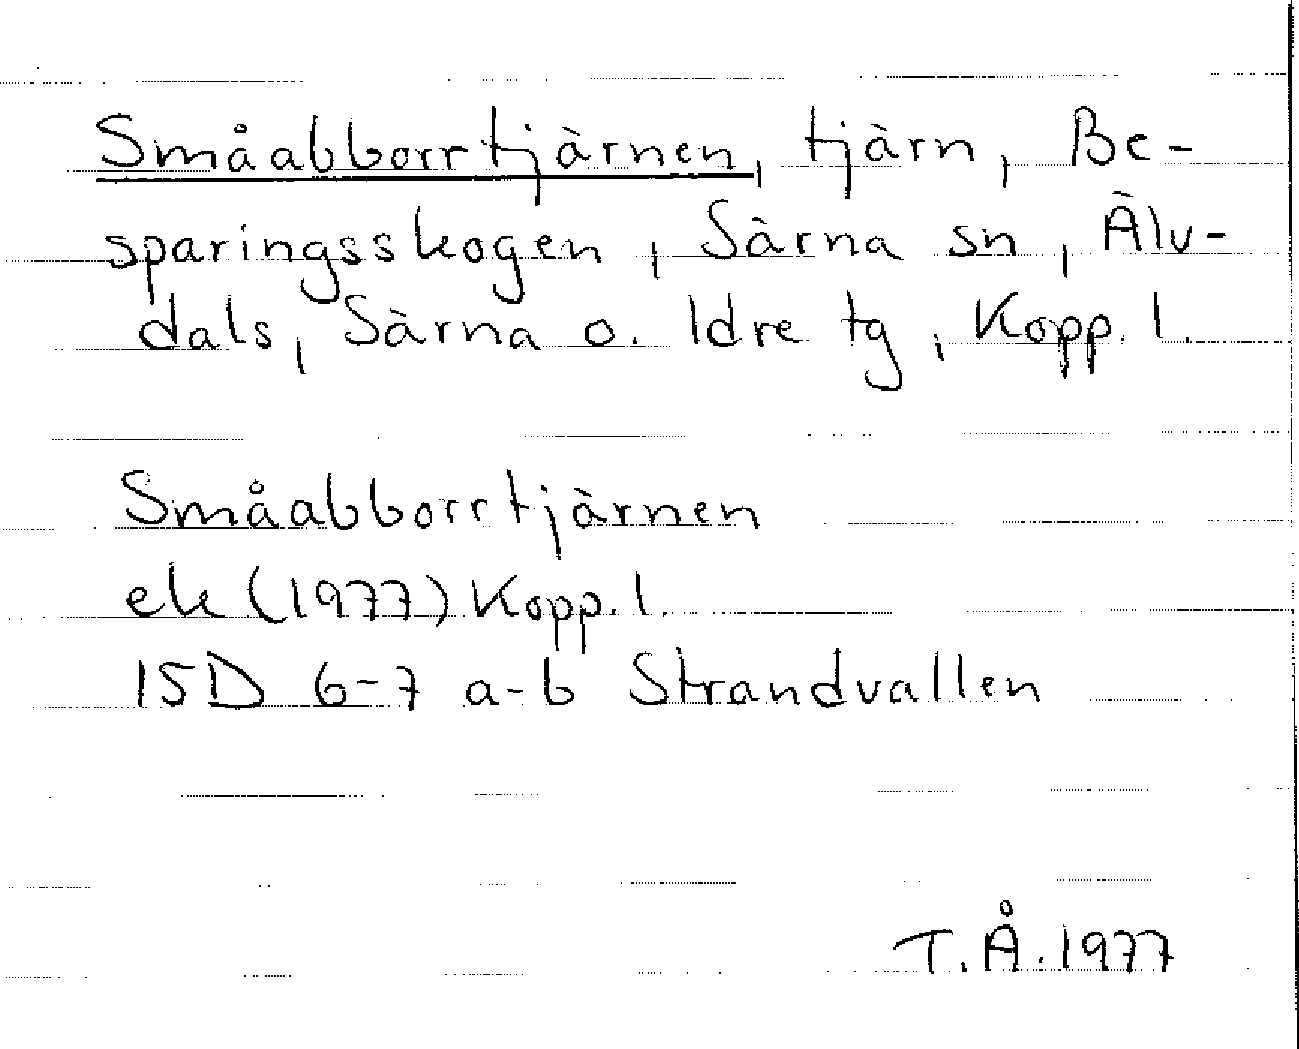 Småabborrtjärnen, tjärn, Be-
sparingsskogen, Särna sn, Älv-
dals, Särna o. Idre tg, Kopp. l.
Småabborrtjärnen
ek (1977) Kopp. l.
15D 6-7 a-b Strandvallen
T.Å. 1977